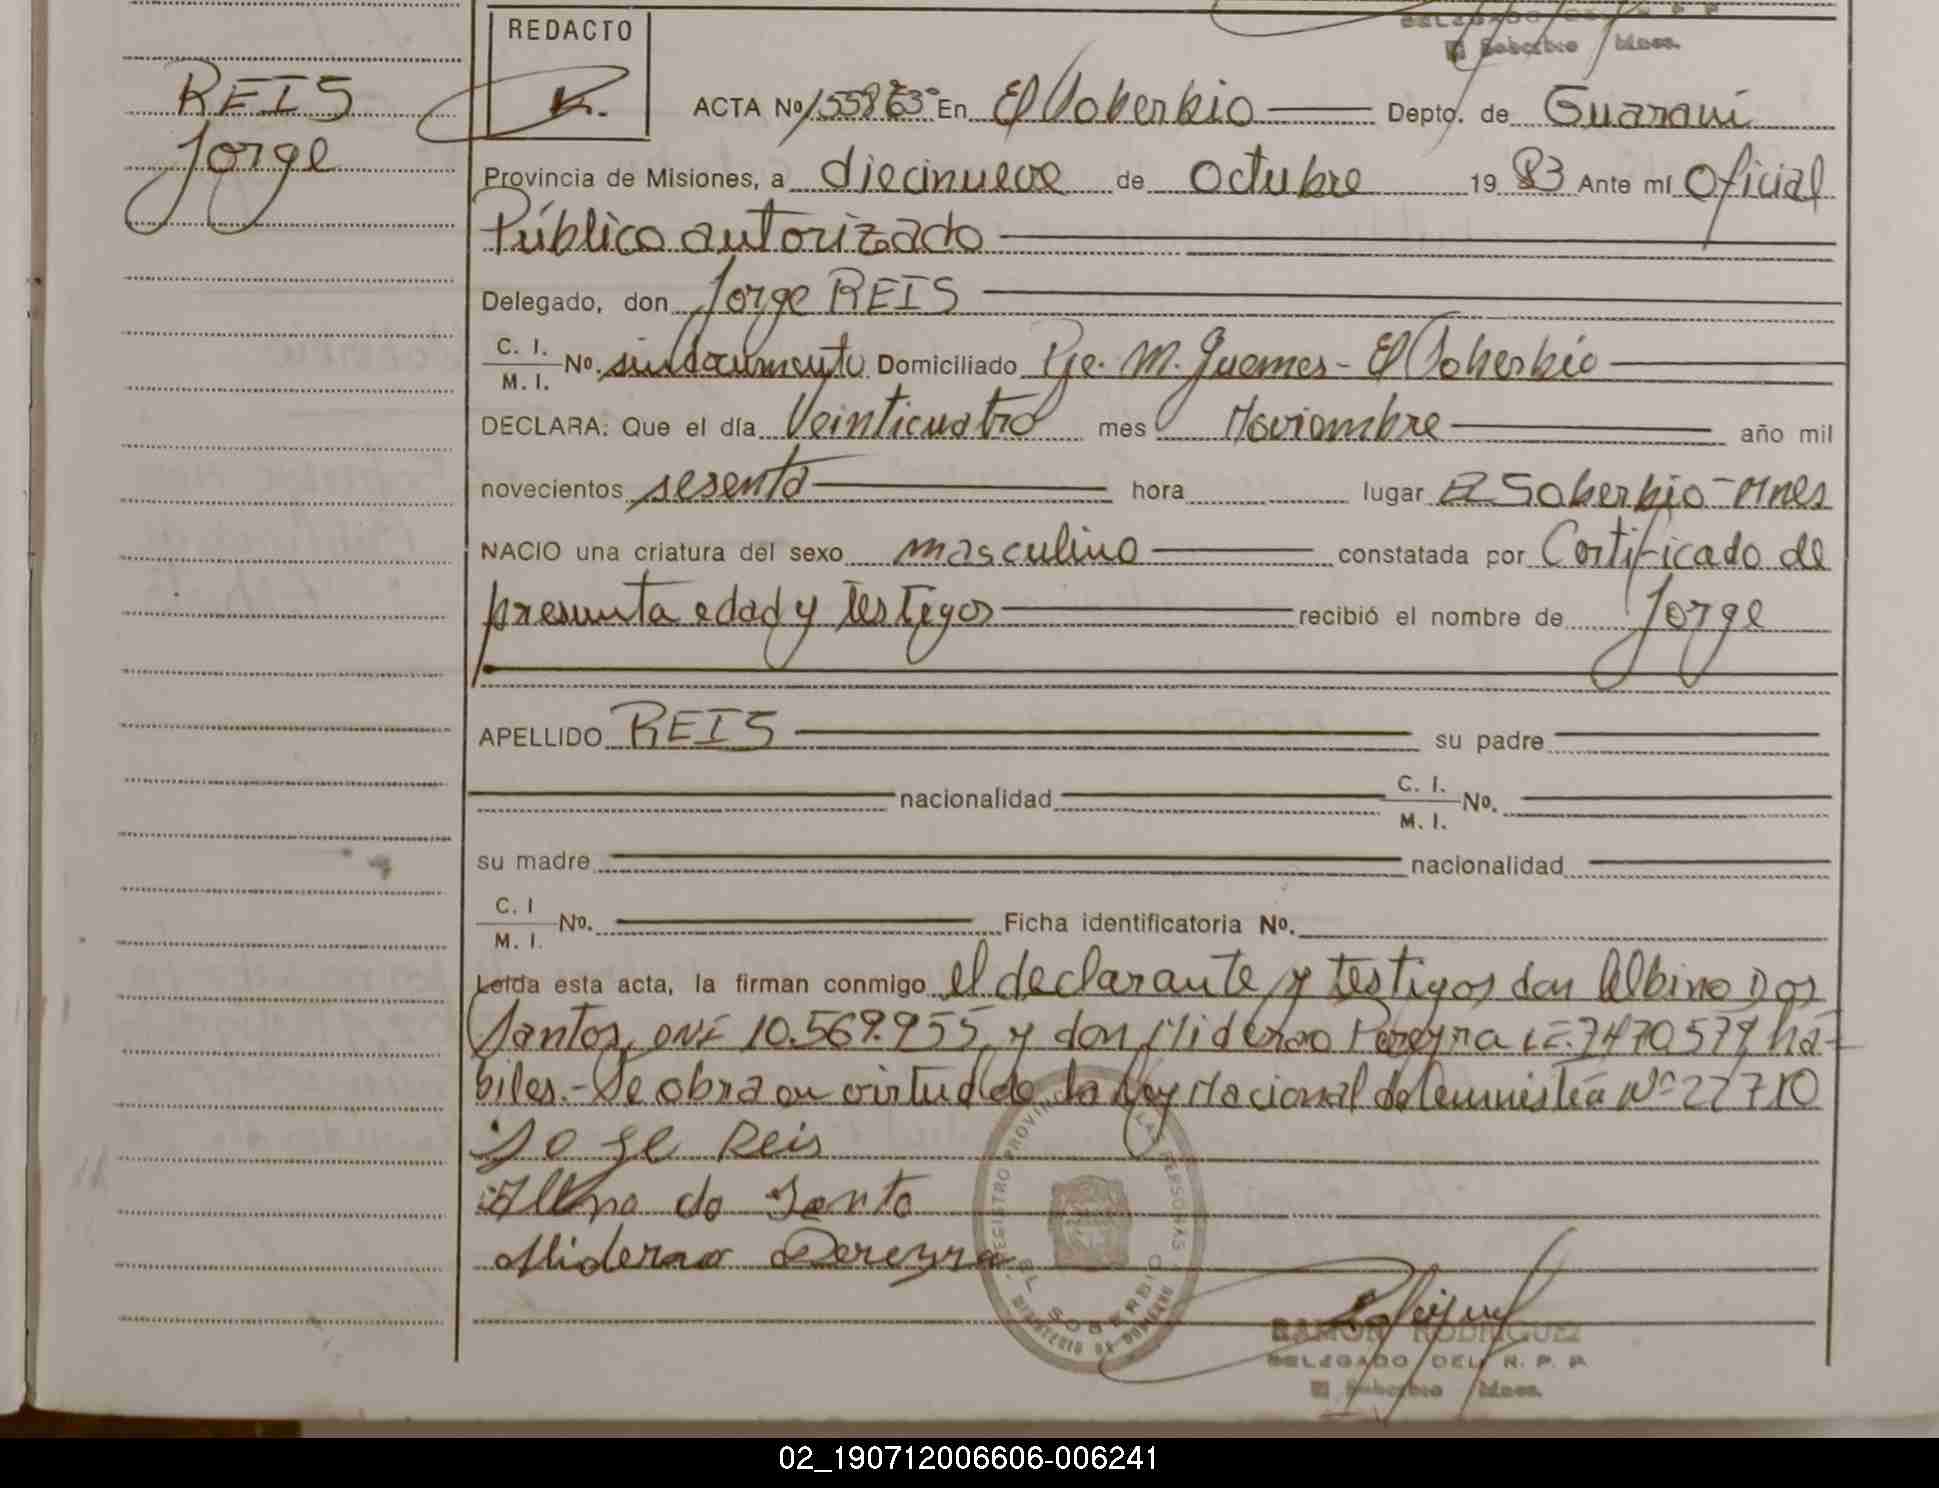 DELEGADO DEL R. P. P.
El Soberbio Mnes.
REIS
Jorge
REDACTO
ACTA Nº En El Soberbio Depto. de Guaraní
Provincia de Misiones, a diecinueve de Octubre 19 83 Ante mí Oficial
Público autorizado
Delegado, don Jorge REIS
C. I.
M. I. Nº. sin documento Domiciliado Pje. M. Guemes - El Soberbio
DECLARA: Que el día Veinticuatro mes Noviembre año mil
novecientos sesenta hora lugar El Soberbio - Mnes
NACIO una criatura del sexo masculino constatada por Certificado de
presunta edad y testigos recibió el nombre de Jorge
APELLIDO REIS su padre
nacionalidad C. I.
M. I. Nº.
su madre nacionalidad
C. I
M. I. Nº. Ficha identificatoria Nº.
Leída esta acta, la firman conmigo el declarante y testigos don Albino Dos
Santos, DNI 10.569.955, y don Miderao Pereyra LE. 7470579 há-
biles.- Se obra en virtud de la Ley Nacional de Amnistía Nº 22710
Jorge Reis
Albino do Santo
Miderao Pereyra
REGISTRO PROVINCIAL DE LAS PERSONAS
EL SOBERBIO
MINISTERIO DE GOBIERNO
RAMON RODRIGUEZ
DELEGADO DEL R. P. P.
El Soberbio Mnes.
02_190712006606-006241